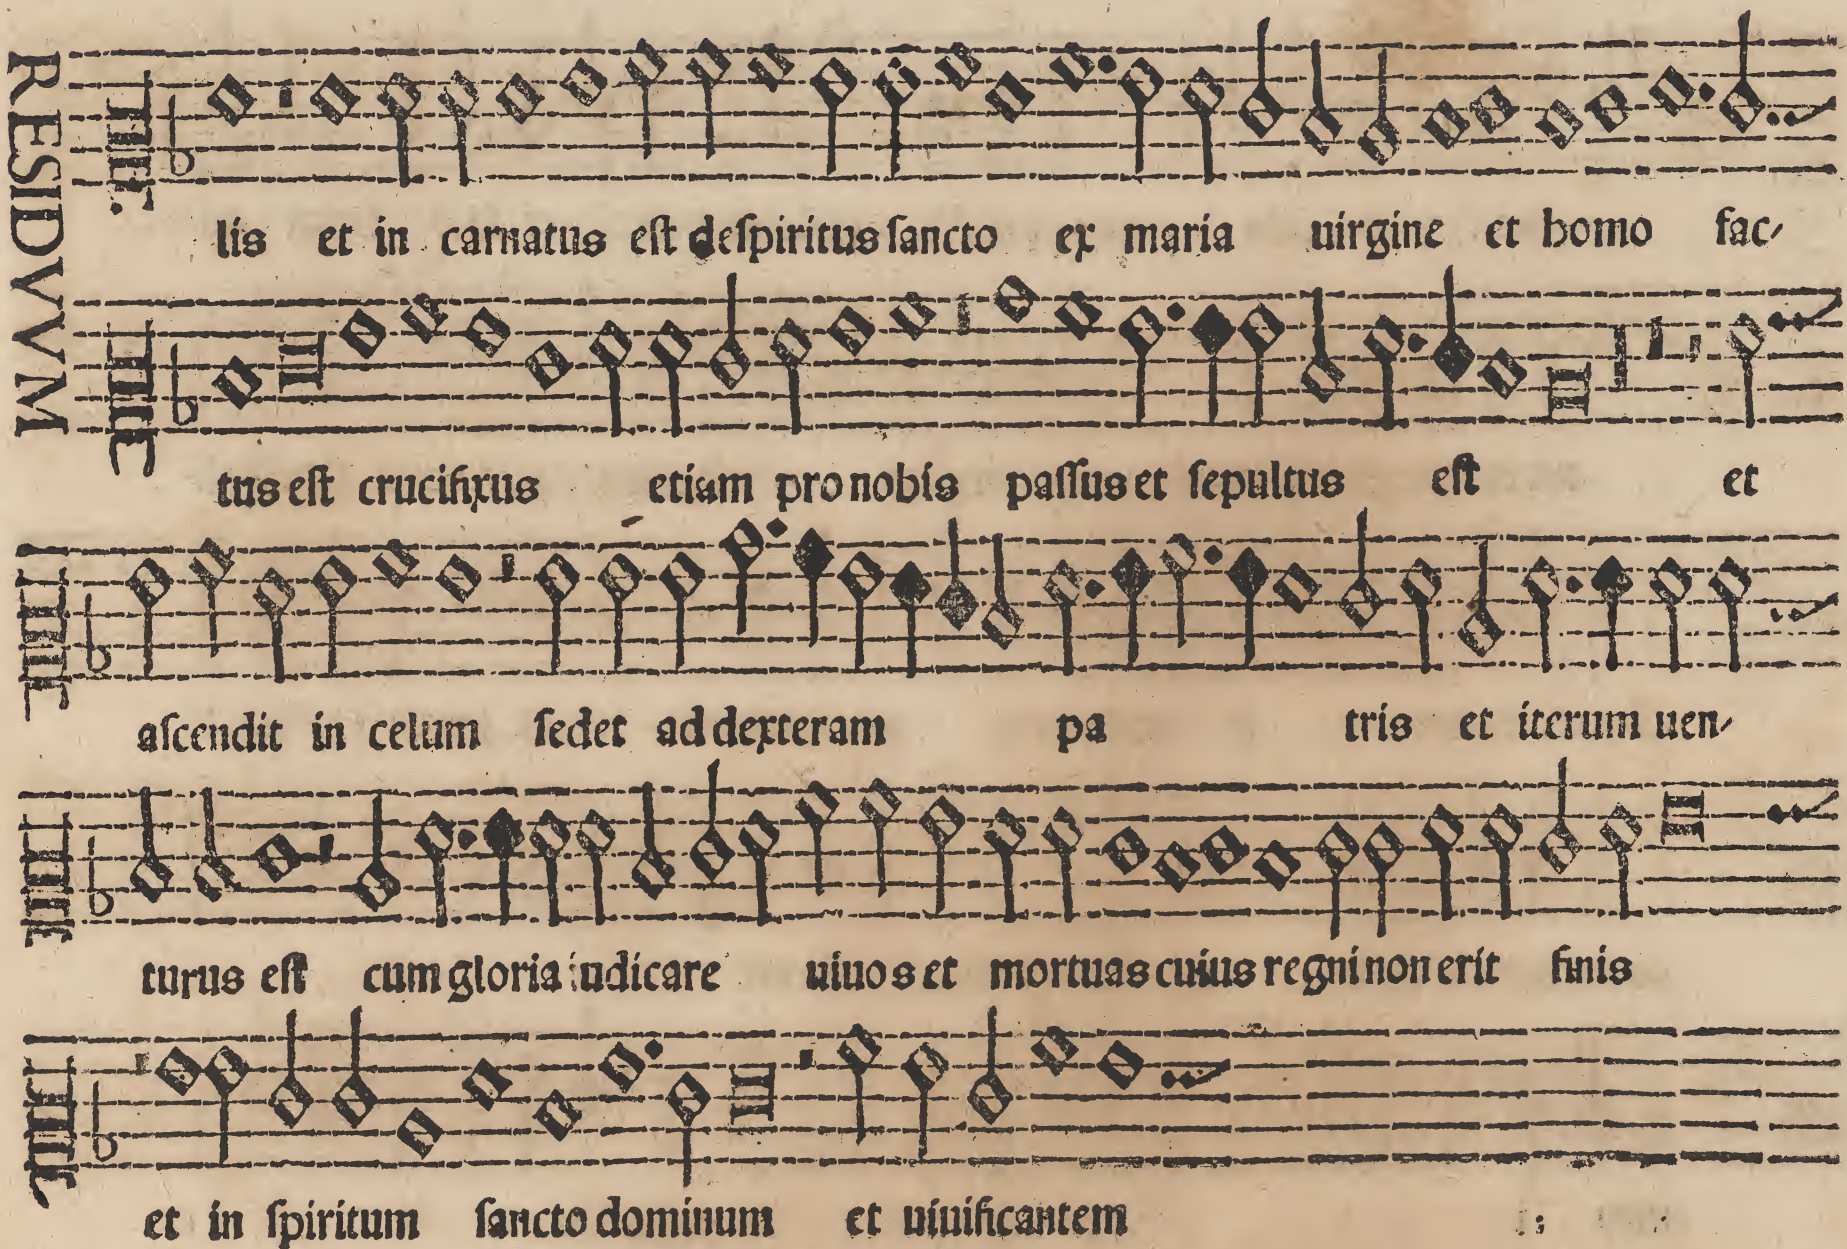 RESIDVVM
lis et in carnatus est despiritus sancto ex maria uirgine et homo fac-
tus est crucifixus etiam pro nobis passus et sepultus est et
ascendit in celum sedet ad dexteram pa tris et iterum uen-
turus est cum gloria iudicare uiuos et mortuas cuius regni non erit finis
et in spiritum sancto dominum et uiuificantem